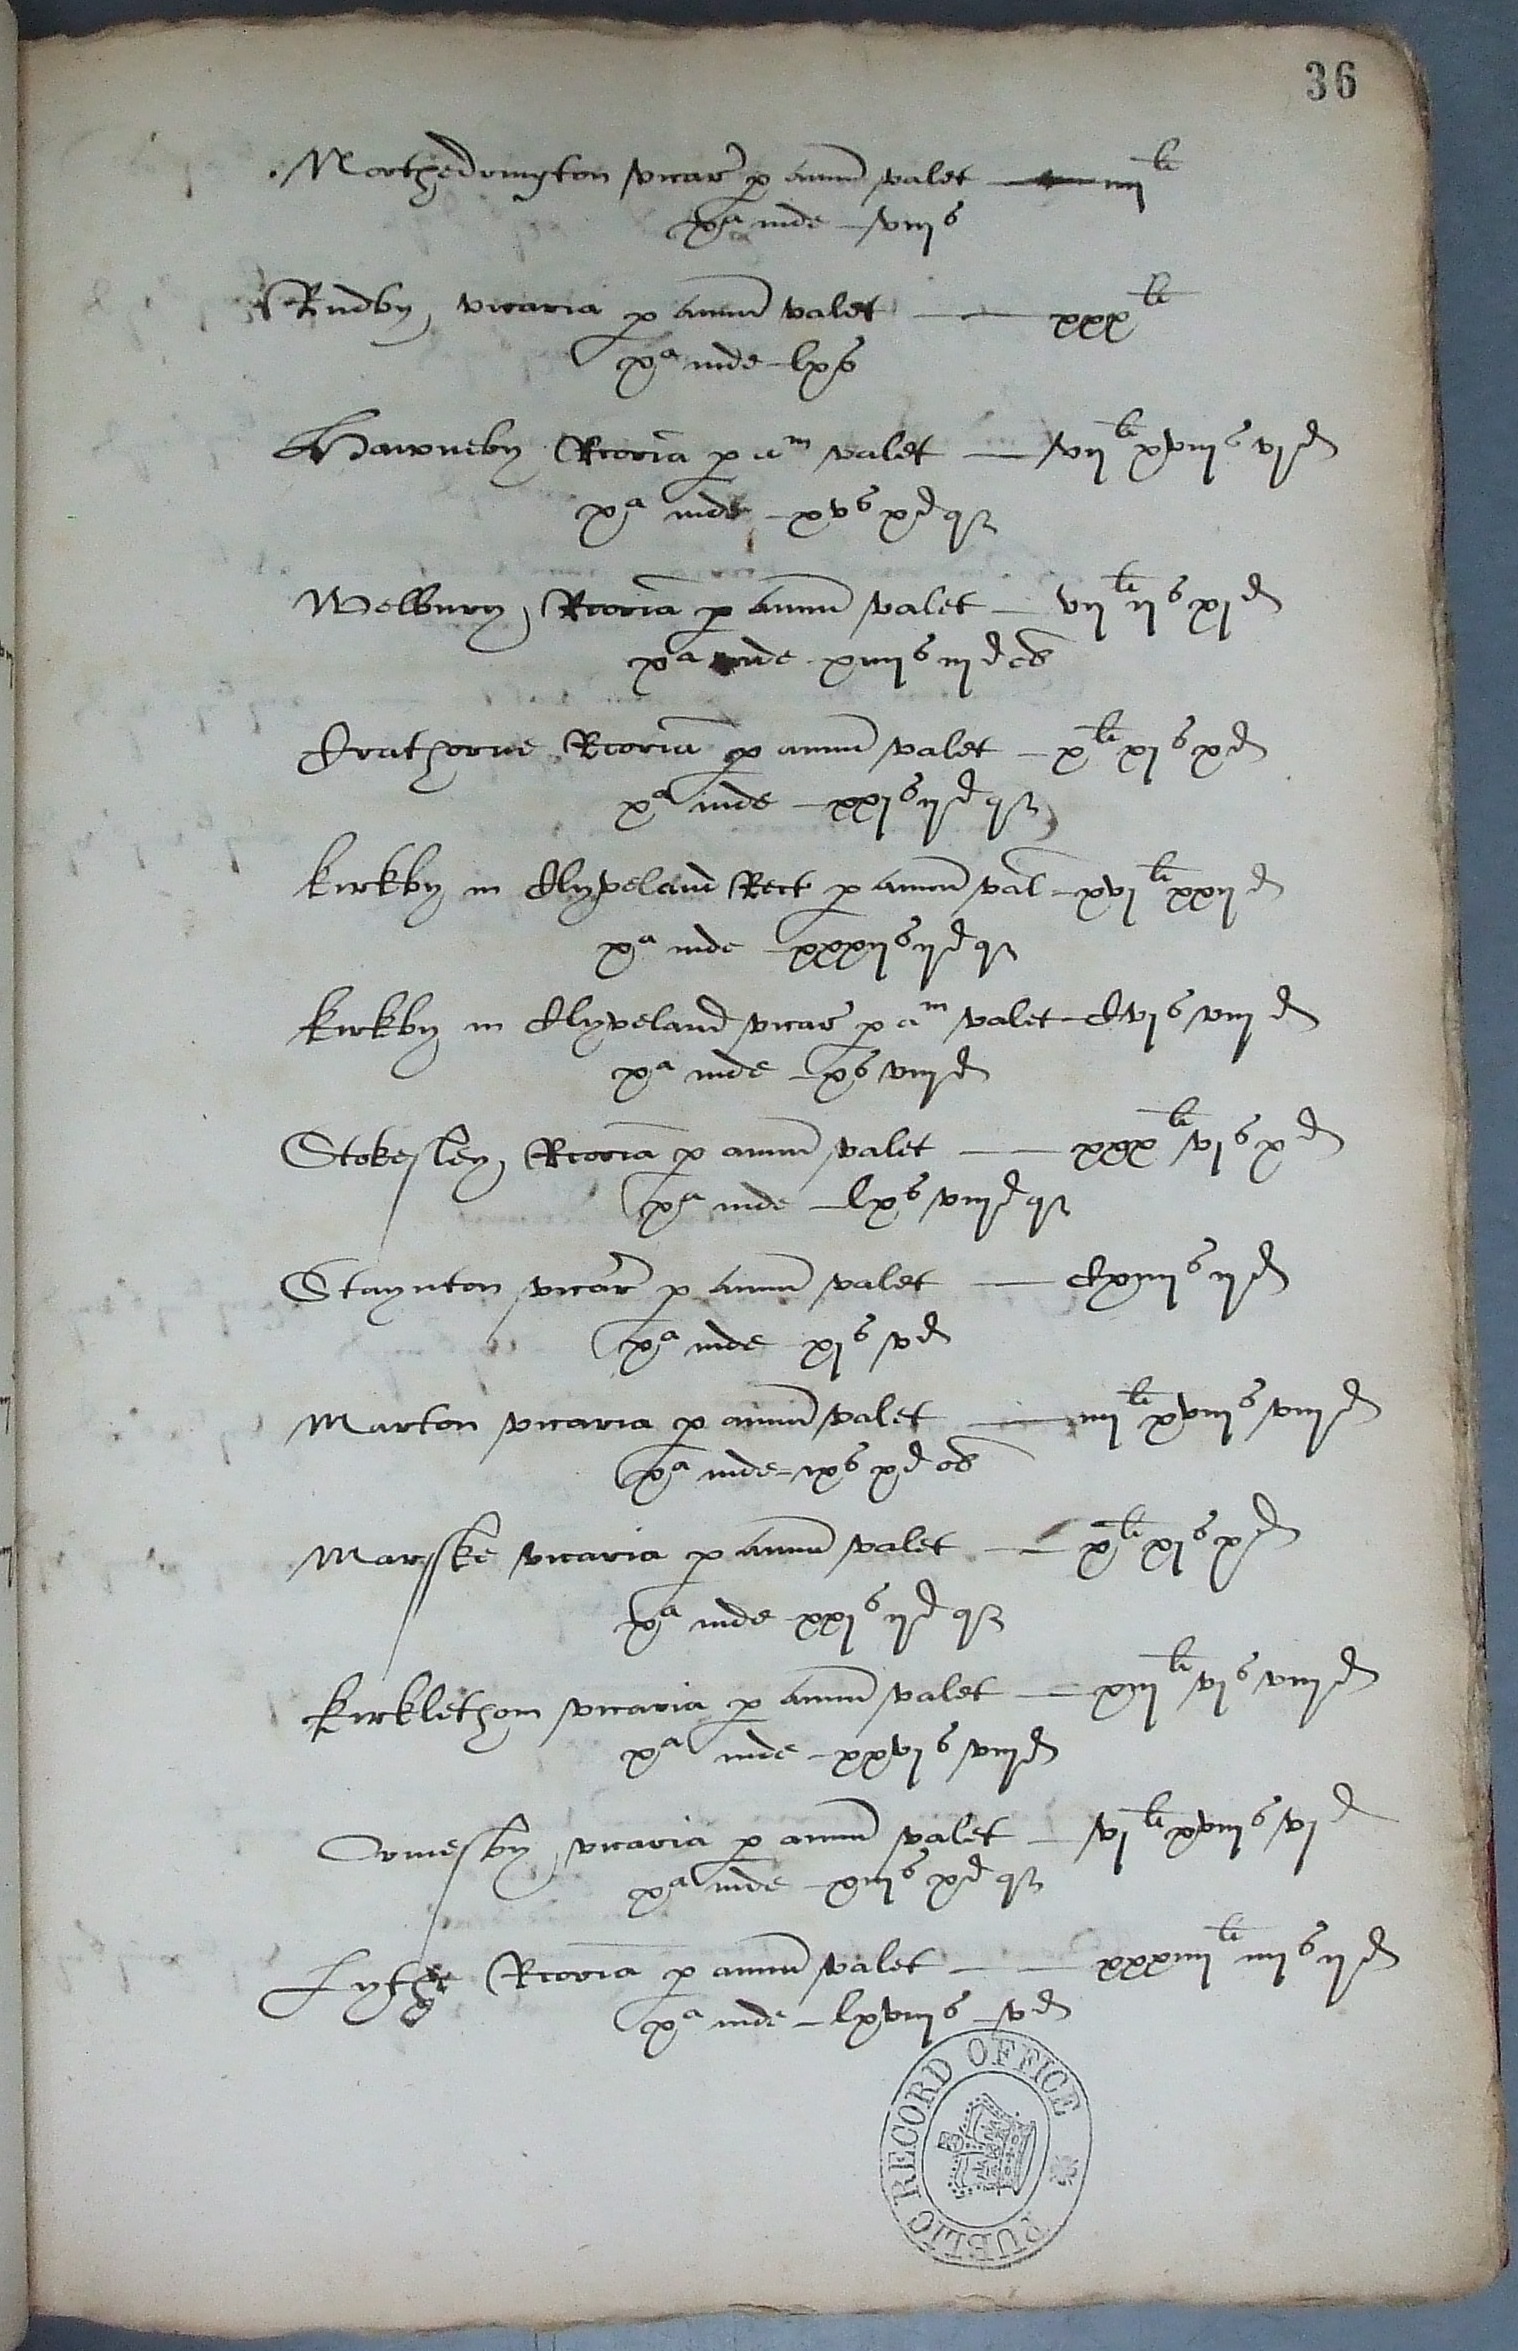 36
Northedrington vicar p annu valet — iiij li
xa inde — viij s
Rudby vicaria p annu valet — xxx li
xa inde — lx s
Hawneby Rcoria p am valet — vij li xviij s vj d
xa inde — xv s x d qz
Welbury Rcoria p annu valet — vij li ij s xj d
xa inde xiiij s iij d ob
Crathorne Rcoria p annu valet — x li xj s x d
xa inde — xxj s ij d qz
Kirkby in Clyveland Rect p annu val — xvj li xxij d
xa inde — xxxij s ij d qz
Kirkby in Clyveland vicar p am valet — Cvj s viij d
xa inde — x s viij d
Stokesley Rcoria p annu valet — xxx li vj s x d
xa inde — lx s viij d qz
Staynton vicar p annu valet — Cxiiij s ij d
xa inde xj s v d
Marton vicaria p annu valet — iiij li xviij s viij d
xa inde — ix s x d ob
Marske vicaria p annu valet — x li xj s x d
xa inde xxj s ij d qz
Kirklethom vicaria p annu valet — xiij li vj s viij d
xa inde — xxvj s viij d
Ormesby vicaria p annu valet — vj li xviij s vj d
xa inde — xiij s x d qz
Lythe Rcoria p annu valet — xxxiiij li iiij s ij d
xa inde — lxviij s v d
PUBLIC RECORD OFFICE